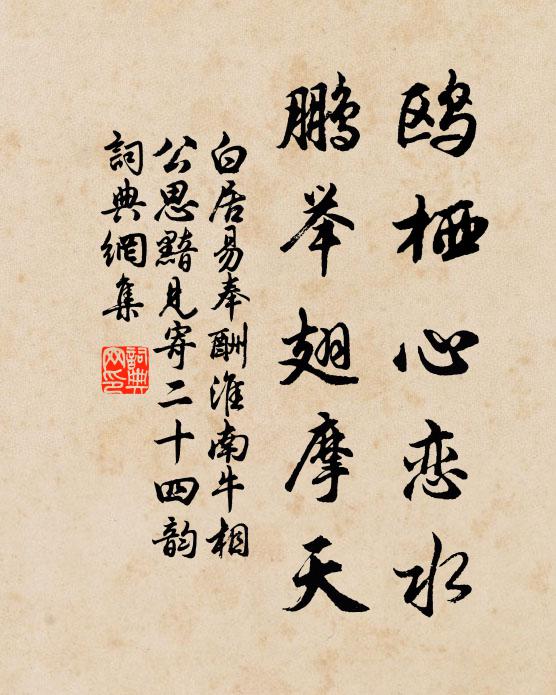 鸥栖心恋水
鹏举翅摩天
白居易奉酬淮南牛相
公思黯见寄二十四韵
詞典網集
詞典
网印